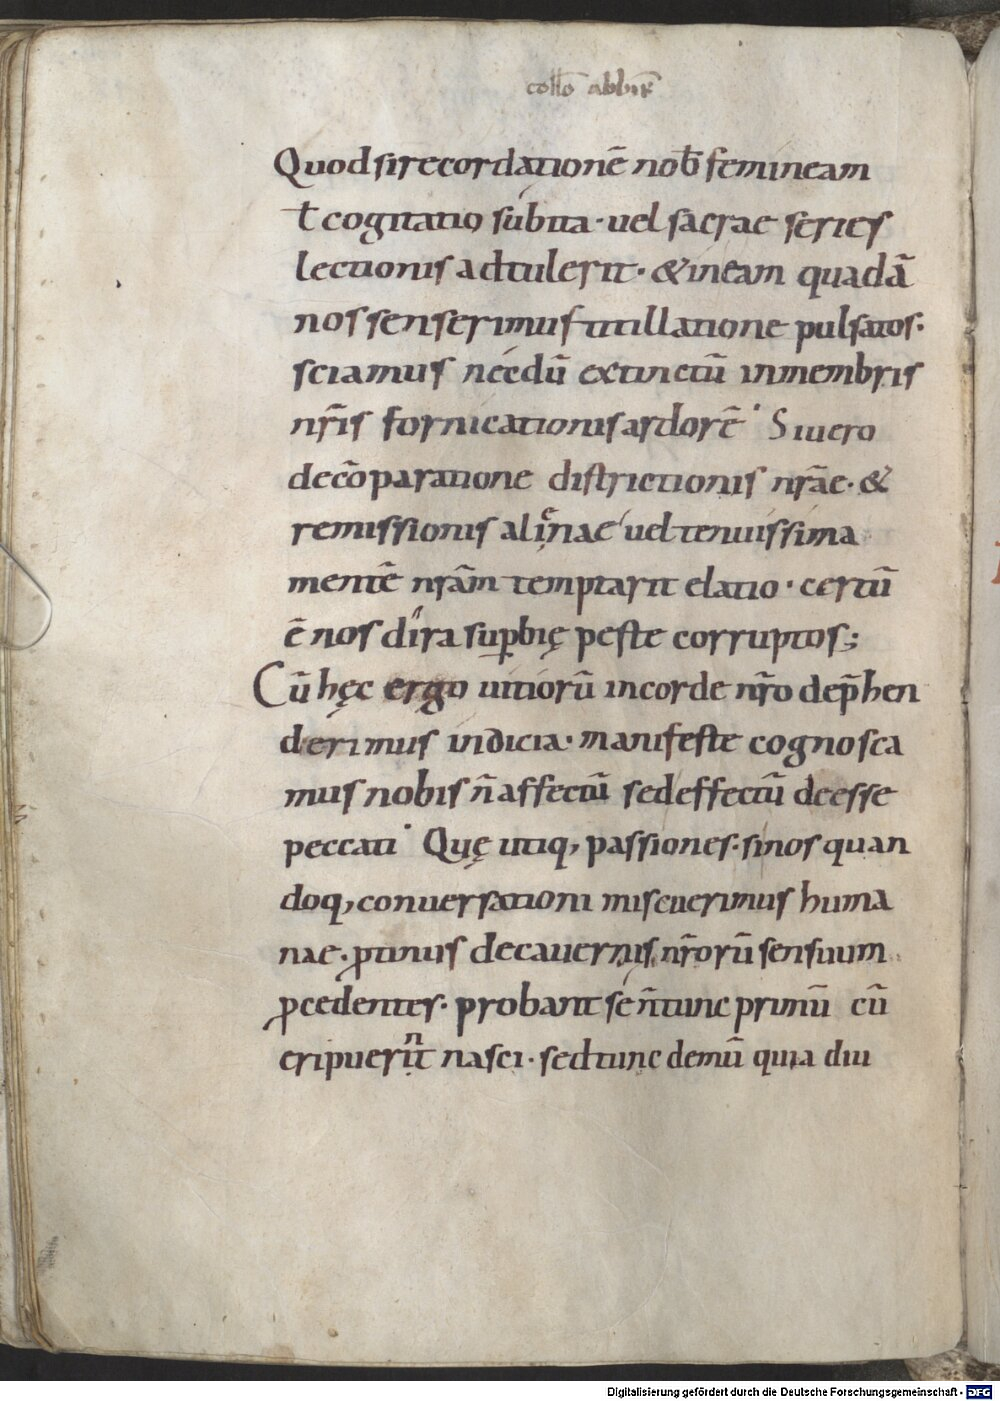 collō abbīr
Quod si recordationē nob̄ femineam
ł cogitatio subita · uel sacrae series
lectionis adtulerit · & in eam quadā
nos senserimus titillatione pulsatos ·
sciamus necdū extinctū in membris
nr̄is fornicationis ardorē · Si uero
de cōparatione districtionis nr̄ae · &
remissionis alienae uel tenuissima
mentē nrām temptarit elatio · certū
ē nos dira sup̱bię peste corruptos ;
Cū hęc ergo uitiorū in corde nr̄o dep̄hen
derimus indicia · manifeste cognosca
mus nobis n̄ affectū sed effectū deesse
peccati · Quę utiq, passiones · si nos quan
doq, conuersationi miscuerimus huma
nae · ꝓtinus de cauernis nr̄orū sensuum
ꝓcedentes · probant se n̄ tunc primū cū
eripuerint nasci · sed tunc demū quia diu
Digitalisierung gefördert durch die Deutsche Forschungsgemeinschaft - DFG